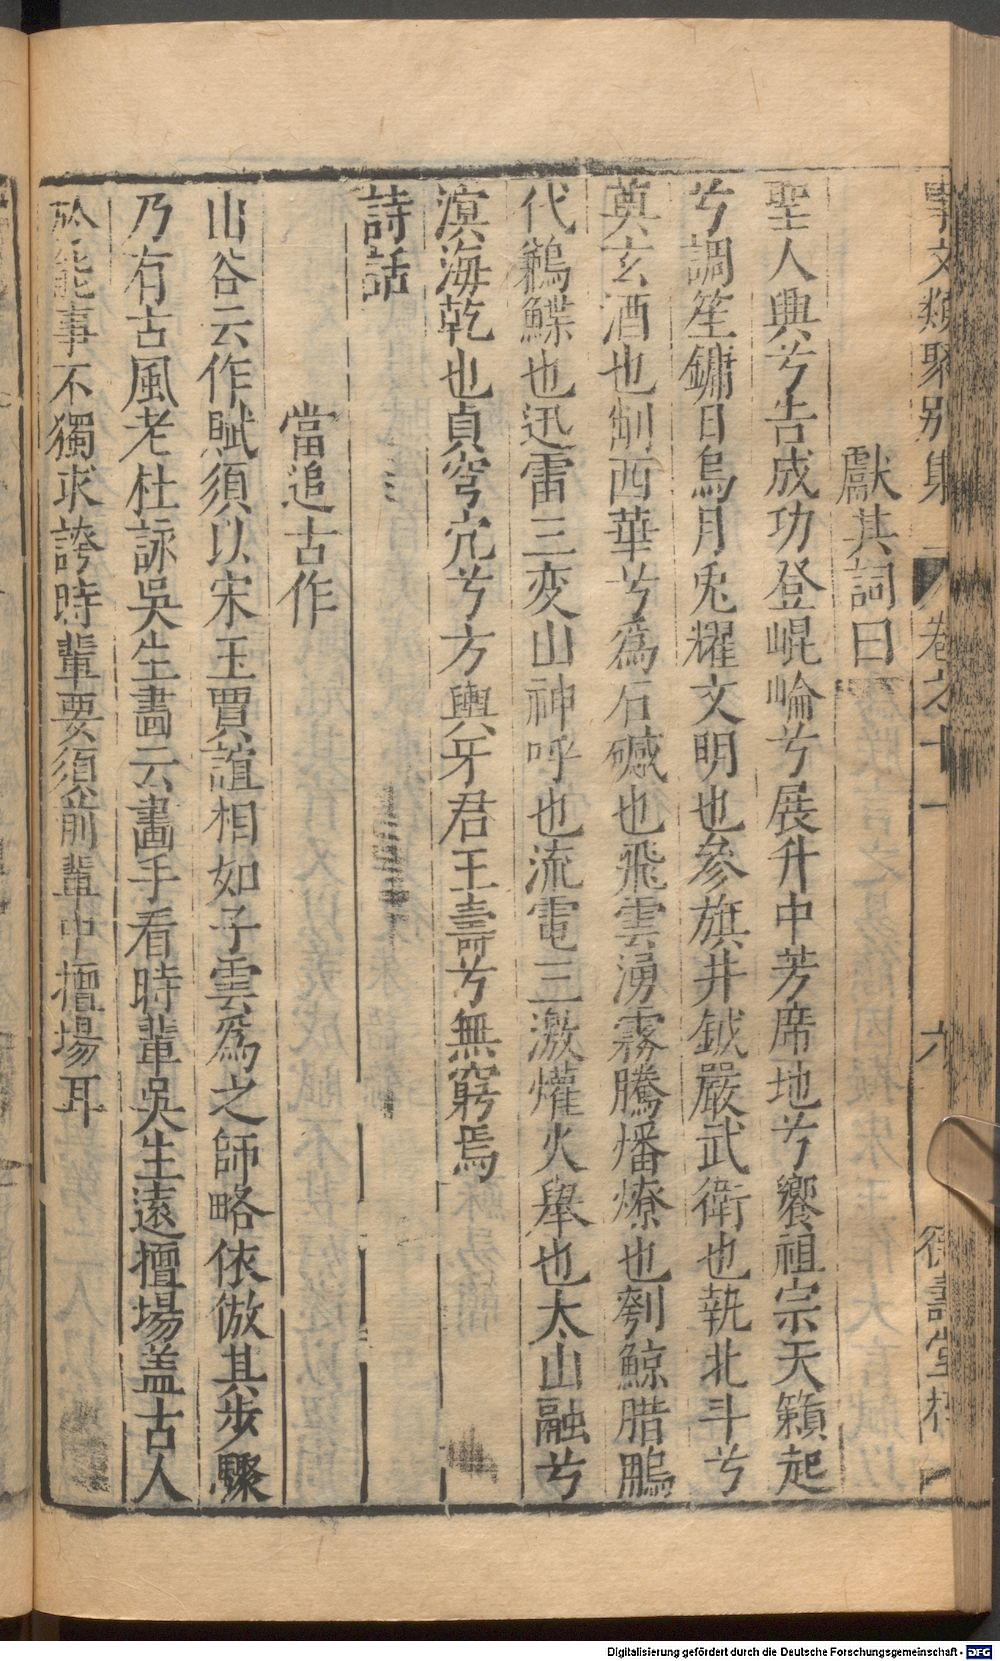 事文類聚別集 卷之十一 六
獻其詞曰
聖人興兮告成功登崐崘兮展升中芳席地兮饗祖宗天籟起
兮調笙鏞日烏月兎耀文明也參旗井鉞嚴武衛也執北斗兮
奠玄酒也削西華兮爲石磩也飛雲湧霧騰燔燎也刳鯨腊鵬
代鶼鰈也迅雷三变山神呼也流電三激爟火舉也太山融兮
溟海乾也貞穹穴兮方輿牙君王壽兮無窮焉
詩話
當追古作
山谷云作賦須以宋玉賈誼相如子雲爲之師略依倣其步驟
乃有古風老杜詠吳生畵云畵手看時輩吳生遠擅塲盖古人
能事不獨求誇時輩要須前輩中擅塲耳
Digitalisierung gefördert durch die Deutsche Forschungsgemeinschaft - DFG